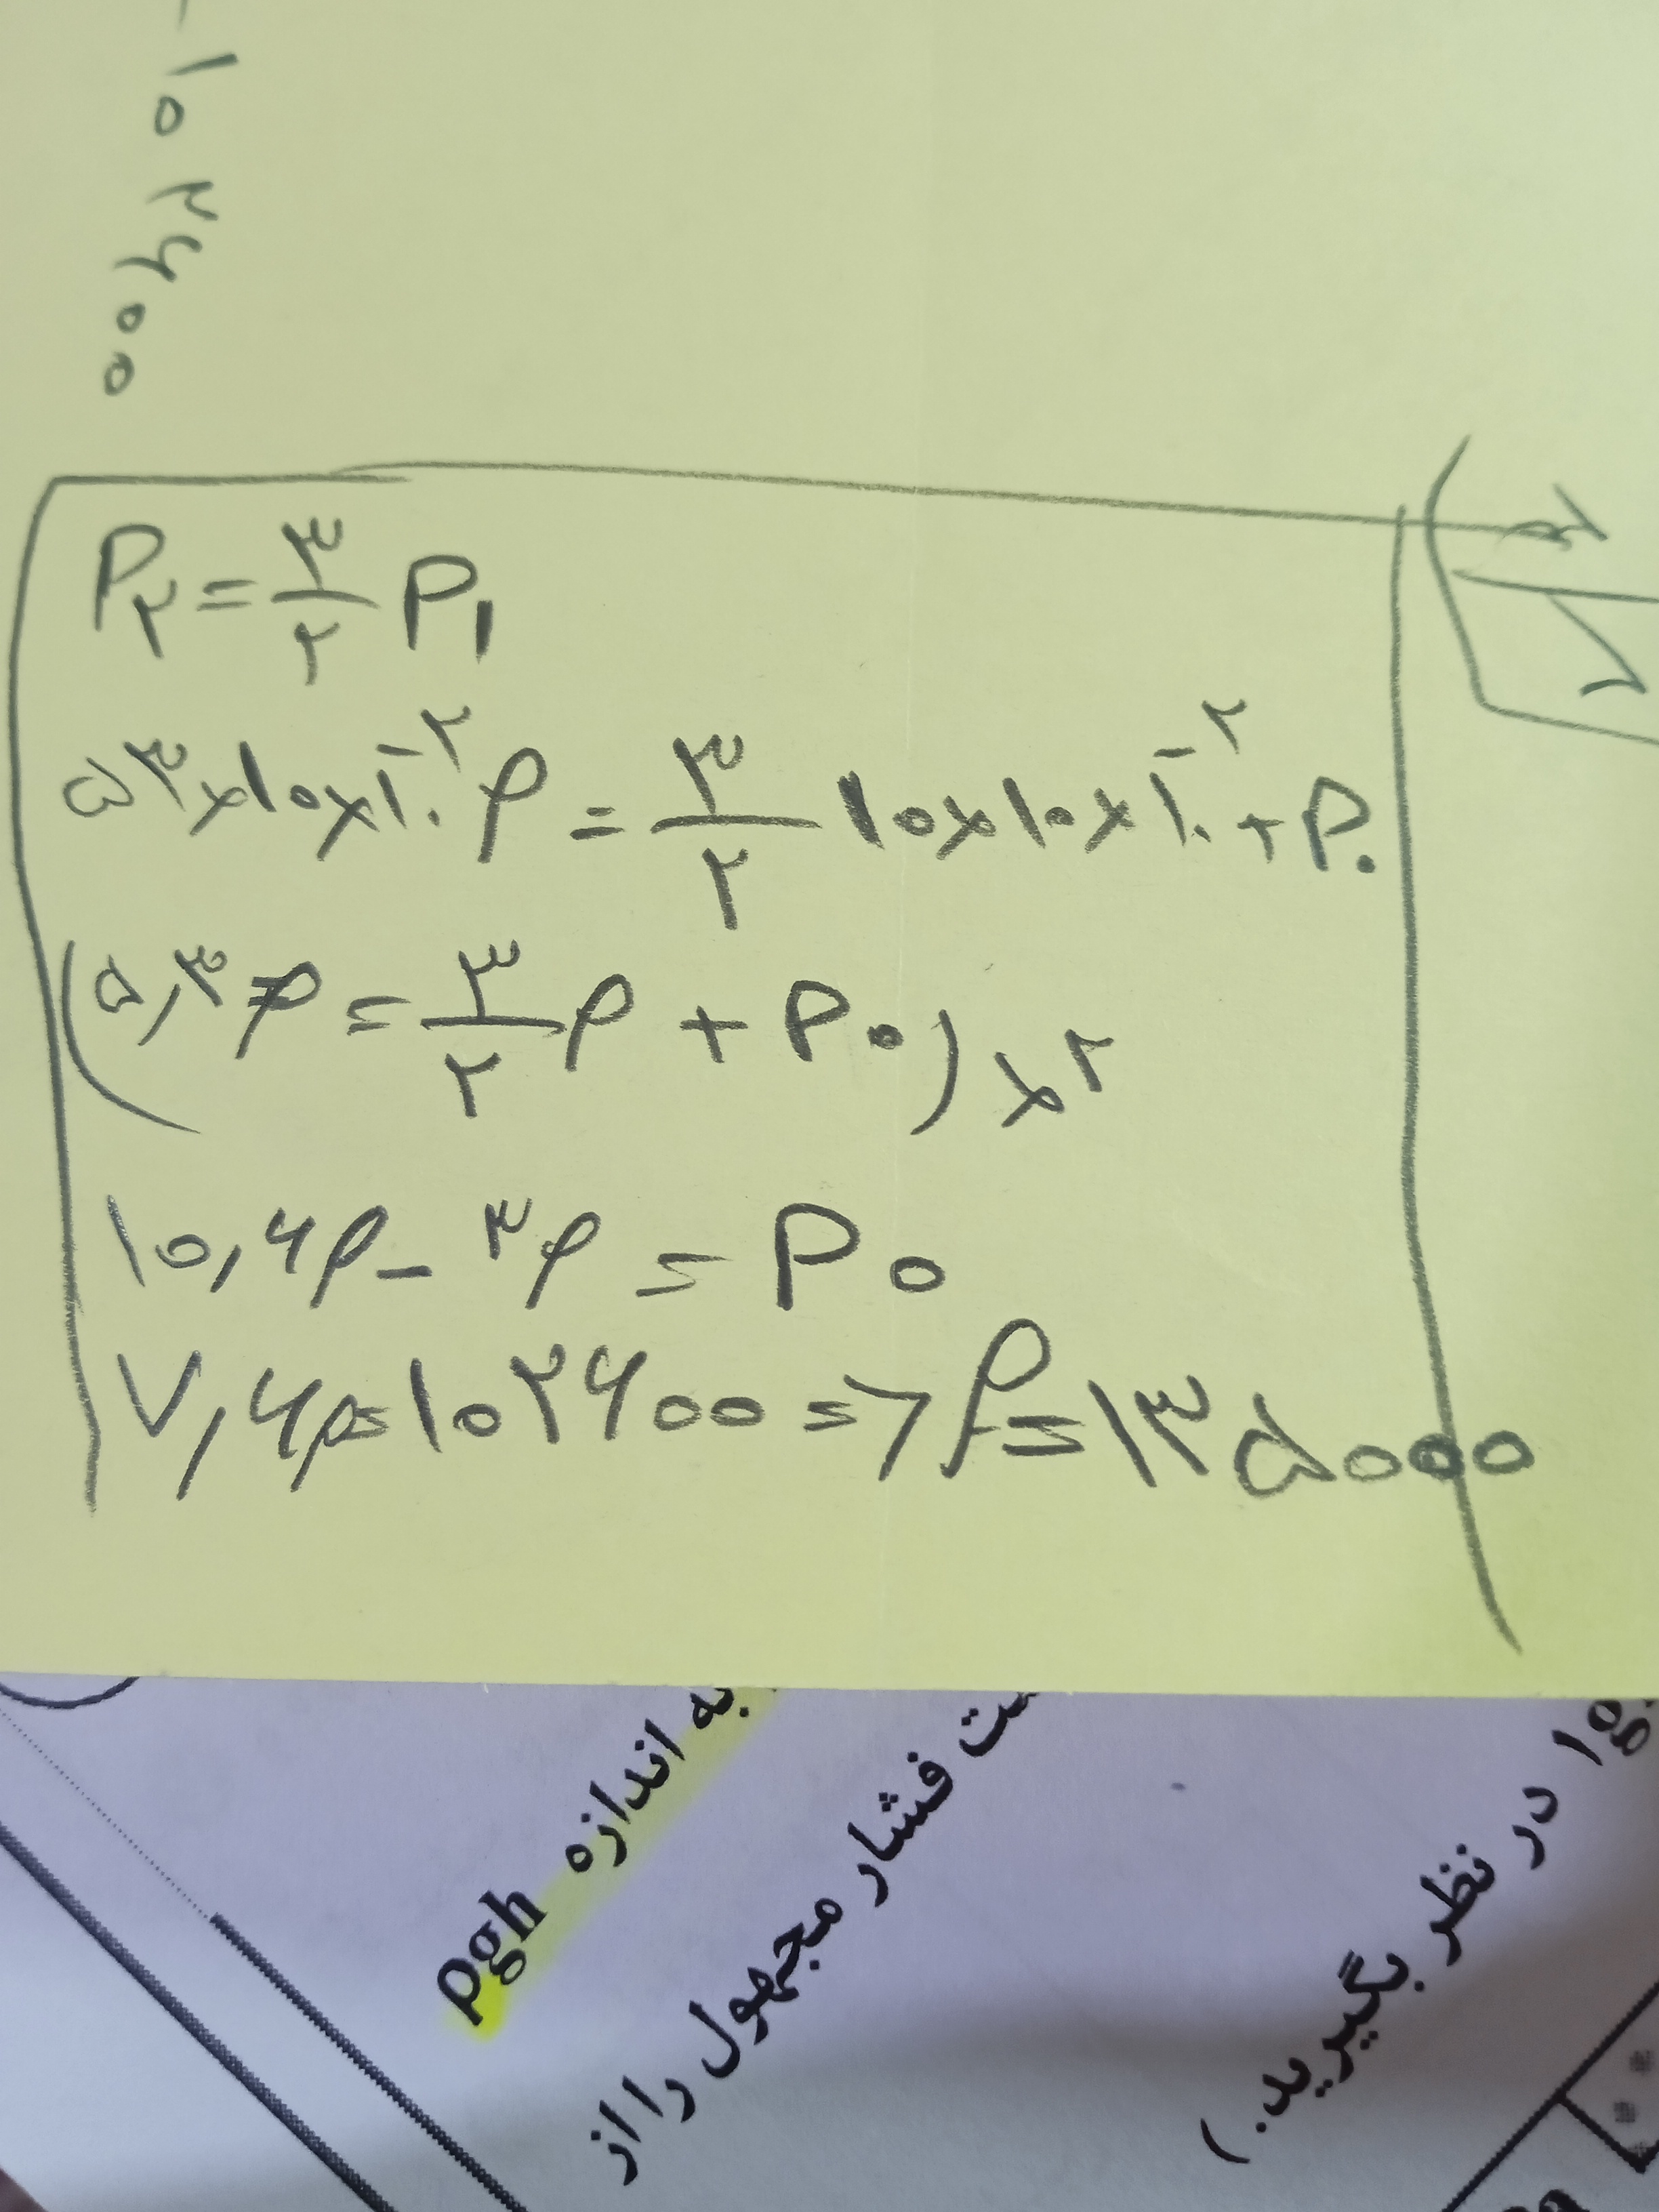 -۱۰۲۶۰۰
P₂ = ۳/۲ P₁
۵۳×۱۰×۱۰⁻² ρ = ۳/۲ ۱۰×۱۰×۱۰⁻² + P.
(۵,۳ρ = ۳/۲ ρ + P۰) ×۲
۱۰,۶ρ - ۳ρ = P۰
۷,۶ρ = ۱۰۲۶۰۰ => ρ = ۱۳۵۰۰۰
به اندازه ρgh
ت فشار مجهول را از
در نظر بگیرید.)